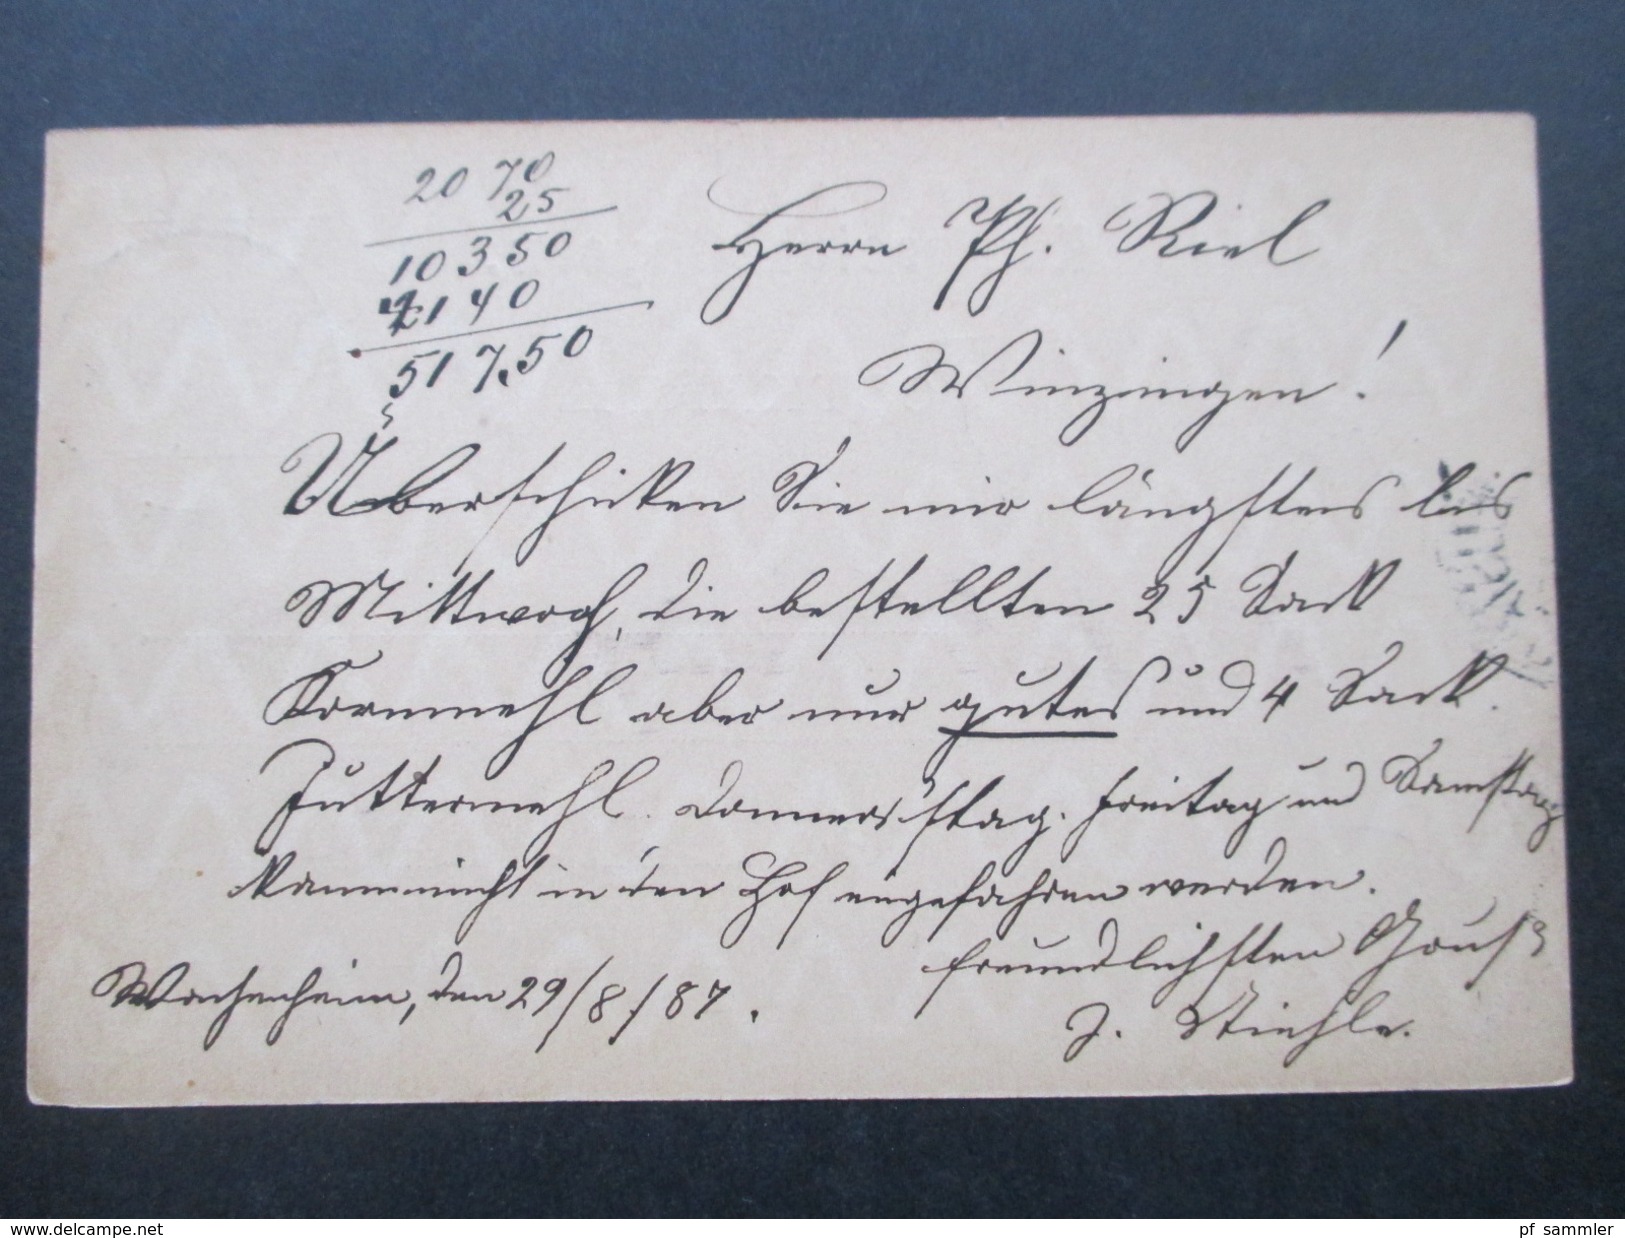 20 70
25
10350
4140
517.50
Herrn Ph. Riel
Winzingen!
Überschicken Sie mir längstens bis
Mittwoch, die bestellten 25 Sack
Kornmehl aber nur gutes und 4 Sack
Futtermehl. Donnerstag. Freitag und Samstag
kann nicht in den Hof eingefahren werden.
freundlichsten Gruß
Wachenheim, den 29/8/87.
J. Stiehle.
www.delcampe.net
pf sammler